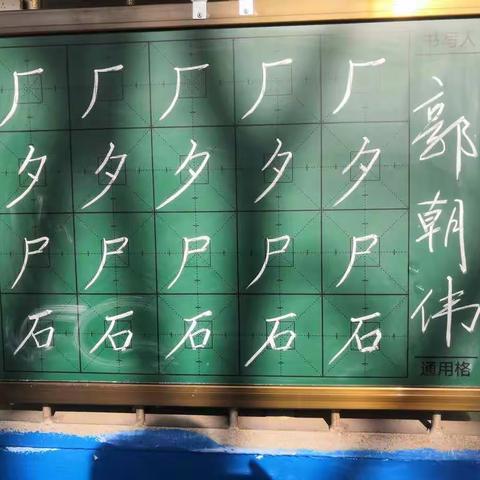 厂 厂 厂 厂 厂
夕 夕 夕 夕 夕
尸 尸 尸 尸 尸
石 石 石 石 石
书写人
郭朝伟
通用格